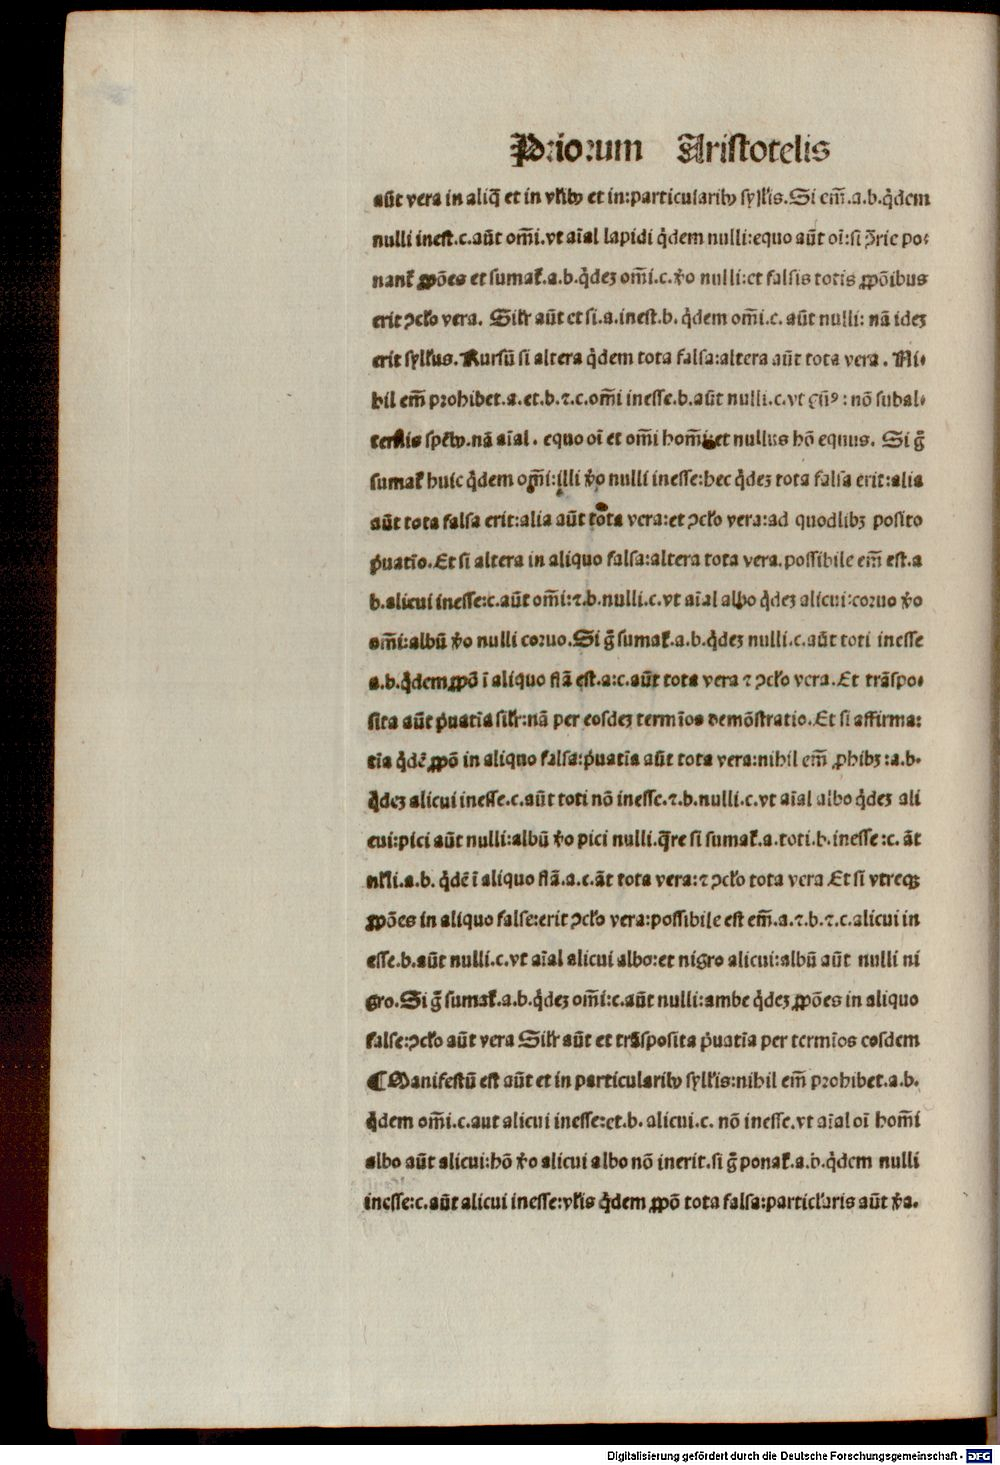 Priorum Aristotelis
aūt vera in aliq̄ et in vl̄ibꝰ et in:particularibꝰ syl̄lis.Si em̄.a.b.q̇dem
nulli inest.c.aūt om̄i.vt aīal lapidi q̇dem nulli:equo aūt oī:si ꝯ̄rie po⸗
nanť ꝓpōes et sumať.a.b.q̇dez om̄i.c.v̊o nulli:et falsis totis ꝓpōibus
erit ꝯcľo vera. Siľr aūt et si.a.inest.b. q̇dem om̄i.c. aūt nulli: nā idez
erit syľľus.Rursū si altera q̇dem tota falsa:altera aūt tota vera. Ni⸗
hil em̄ prohibet.a.et.b.⁊.c.om̄i inesse.b.aūt nulli.c.vt gn̄ꝰ: nō subal⸗
ternis spēbꝰ.nā aīal. equo oī et om̄i homi et nullus hō equus. Si g̊
sumať huic q̇dem om̄i:illi v̊o nulli inesse:hec q̇dez tota falsa erit:alia
aūt tota falsa erit:alia aūt tota vera:et ꝯcľo vera:ad quodlibꝫ posito
p̍uatīo.Et si altera in aliquo falsa:altera tota vera.possibile em̄ est.a
b.alicui inesse:c.aūt om̄i:⁊.b.nulli.c.vt aīal albo q̇dez alicui:coruo v̊o
om̄i:albū v̊o nulli coruo.Si g̊ sumať.a.b.q̇dez nulli.c.aūt toti inesse
a.b.q̇dem ꝓpō ī aliquo fľā est.a:c.aūt tota vera ⁊ ꝯcľo vera.Et trāspo⸗
sita aūt p̍uatīa siľr:nā per eosdez termīos demōstratio.Et si affirma⸗
tīa q̇dē ꝓpō in aliquo falsa:p̍uatīa aūt tota vera:nihil em̄ ꝓhibꝫ:a.b.
q̇dez alicui inesse.c.aūt toti nō inesse.⁊.b.nulli.c.vt aīal albo q̇dez ali
cui:pici aūt nulli:albū v̊o pici nulli.q̄re si sumať.a.toti.b.inesse:c. āt
nľli.a.b. q̇dē ī aliquo fľā.a.c.āt tota vera:⁊ ꝯcľo tota vera Et si vtreqꝫ
ꝓpōes in aliquo false:erit ꝯcľo vera:possibile est em̄.a.⁊.b.⁊.c.alicui in
esse.b.aūt nulli.c.vt aīal alicui albo:et nigro alicui:albū aūt nulli ni
gro.Si g̊ sumať.a.b.q̇dez om̄i:c.aūt nulli:ambe q̇dez ꝓpōes in aliquo
false:ꝯcľo aūt vera Siľr aūt et trāsposita p̍uatīa per termīos eosdem
¶Manifestū est aūt et in particularibꝰ syľľis:nihil em̄ prohibet.a.b.
q̇dem om̄i.c.aut alicui inesse:et.b. alicui.c. nō inesse.vt aīal oī homī
albo aūt alicui:hō v̊o alicui albo nō inerit.si g̊ ponať.a.b.q̇dem nulli
inesse:c.aūt alicui inesse:vľis q̇dem ꝓpō tota falsa:particľaris aūt v̊a.
Digitalisierung gefördert durch die Deutsche Forschungsgemeinschaft - DFG